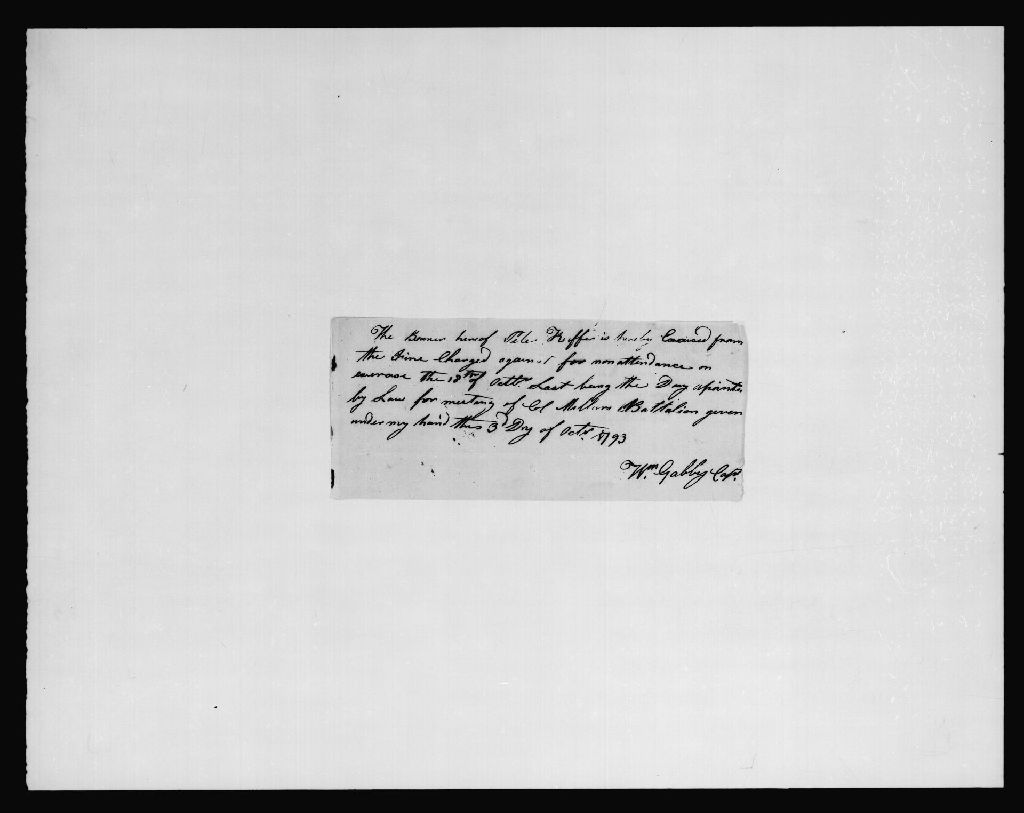 The Bearer hereof Peter Keffer is hereby Excused from
the fine Charged against for non attendance on
exercise the 18th of Octbr Last being the Day apointed
by Law for meeting of Col Battalion given
under my hand this 3d Day of Octr 1793
Wm. Gabby Capt.